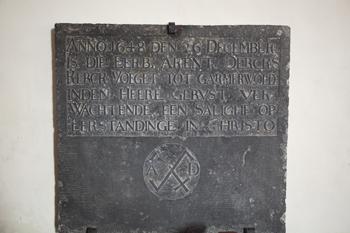 ANNO 1648 DEN 26 DECEMBER
IS DIE EERB. ARENT DERCKS
KERCK VOEGET TOT GARMERWOLD
INDEN HEERE GERVST VER-
WACHTENDE EEN SALIGHE OP
EERSTANDINGE IN CHRISTO
A D